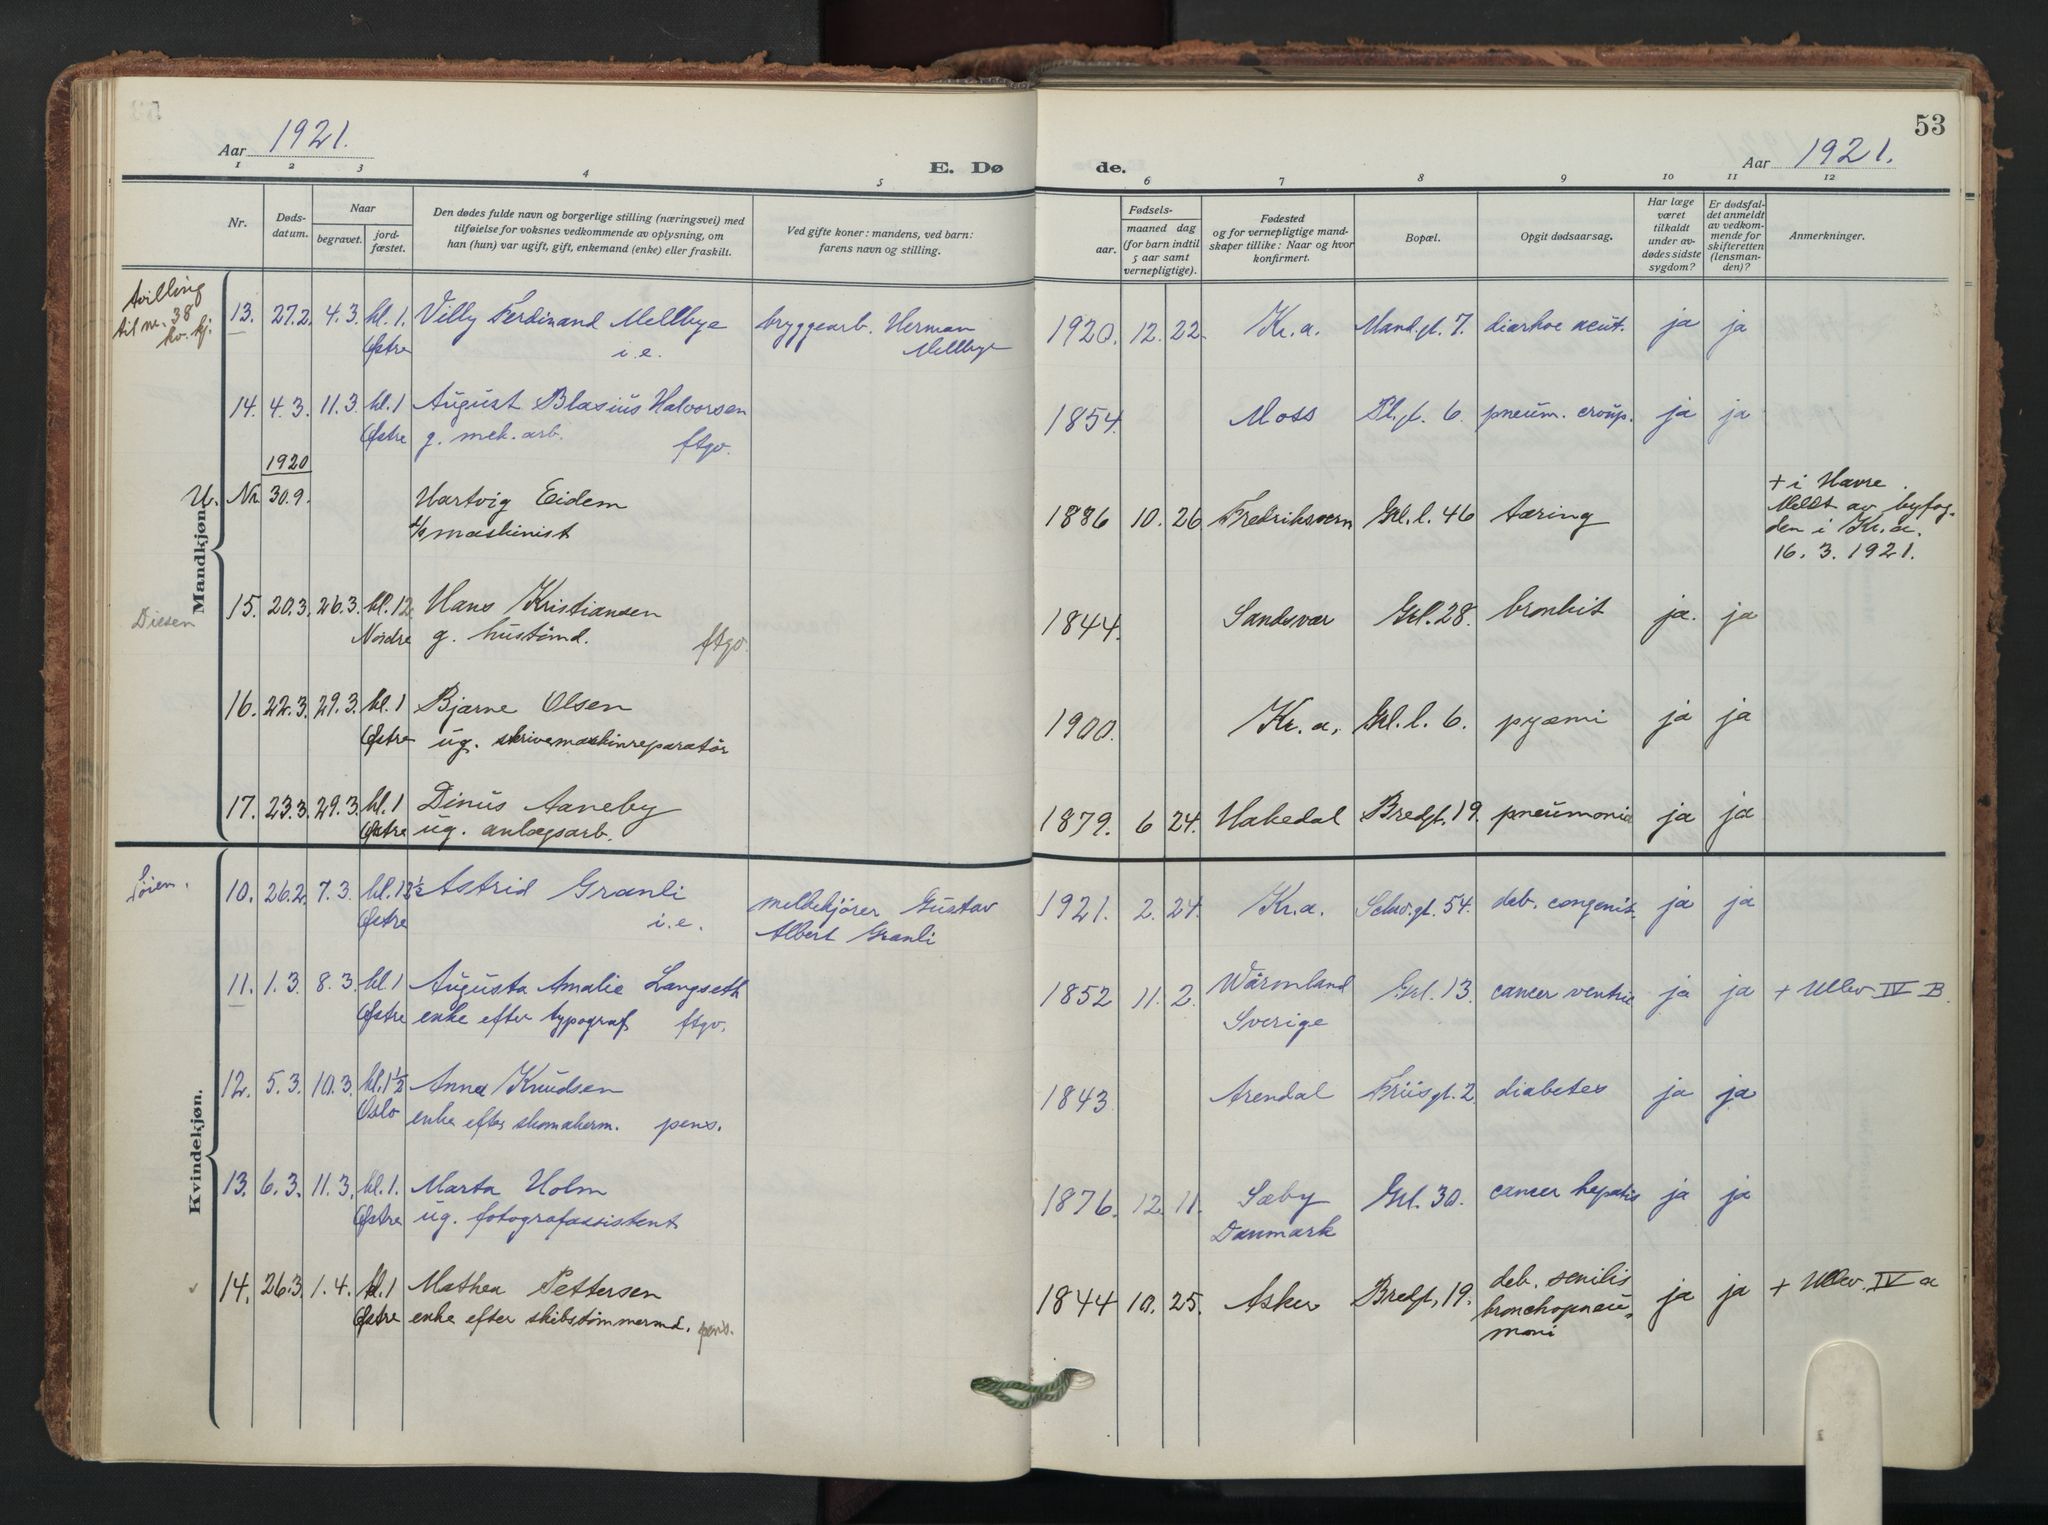 53
Aar 1921.
Aar 1921.
E. Dø
de.
1 2 3 4 5
6 7 8 9 10 11 12
Nr.
Døds-
datum.
Naar
begravet.
jord-
fæstet.
Den dødes fulde navn og borgerlige stilling (næringsvei) med
tilføielse for voksnes vedkommende av oplysning, om
han (hun) var ugift, gift, enkemand (enke) eller fraskilt.
Ved gifte koner: mandens, ved barn:
farens navn og stilling.
Fødsels-
aar.
maaned dag
(for barn indtil
5 aar samt
vernepligtige).
Fødested
og for vernepligtige mand-
skaper tillike: Naar og hvor
konfirmert.
Bopæl.
Opgit dødsaarsag.
Har læge
været
tilkaldt
under av-
dødes sidste
sygdom?
Er dødsfal-
det anmeldt
av vedkom-
mende for
skifteretten
(lensman-
den)?
Anmerkninger.
Mandkjøn.
tvilling
til nr. 38
kv. kj.
13. 27.2. 4.3. kl. 1. Villy Ferdinand Mellbye bryggearb. Herman 1920. 12. 22. Kr.a. Mand.gt. 7. diarhoe acut. ja ja
Østre i.e. Mellbye
14. 4.3. 11.3. kl. 1 August Blasius Halvorsen 1854. Moss Pl.gt. 6. pneum. croup. ja ja
Østre g. mek. arb. ftgv.
1920
U. Nr. 30.9. Hartvig Eidem 1886 10. 26 Fredriksvern Grl. l. 46 tæring + i Havre.
d/s maskinist Meldt av byfog-
den i Kr.a.
16. 3. 1921.
Diesen
15. 20.3. 26.3. kl. 12 Hans Kristiansen 1844. Sandsvær Grl. 28. bronkit ja. ja
Nordre g. hustømd. ftgv.
16. 22.3. 29.3. kl. 1 Bjarne Olsen 1900. Kr.a. Grl. l. 6. pyæmi ja ja
Østre ug. skrivemaskinreparatør
17. 23.3. 29.3. kl. 1 Dinus Aaneby 1879. 6 24. Hakedal Bredgt. 19. pneumonia ja ja
Østre ug. anlægsarb.
Kvindekjøn.
10. 26.2. 7.3. kl. 1 1/2 Astrid Granli melkekjører Gustav 1921. 2. 24. Kr.a. Schw.gt. 54. deb. congenit. ja ja
Østre i.e. Albert Granli
11. 1.3. 8.3. kl. 1 Augusta Amalie Langseth 1852 11. 2. Wärmland Grl. 13. cancer ventric ja ja + Ullev. IV B.
Østre enke efter typograf ftgv. Sverige
12. 5.3. 10.3. kl. 1 1/2 Anna Knudsen 1843 Arendal Friisgt. 2. diabetes ja ja
Oslo enke efter skomakerm. pens.
13. 6.3. 11.3. kl. 1. Marta Holm 1876. 12. 11. Sæby Grl. 30. cancer hepatis ja ja
Østre ug. fotografassistent Danmark
14. 26.3. 1.4. kl. 1 Mathea Pettersen 1844 10. 25. Asker Bredgt. 19. deb. senilis ja ja + Ullev. IV a
Østre enke efter skibstømmermd. pens. bronchopneu-
moni